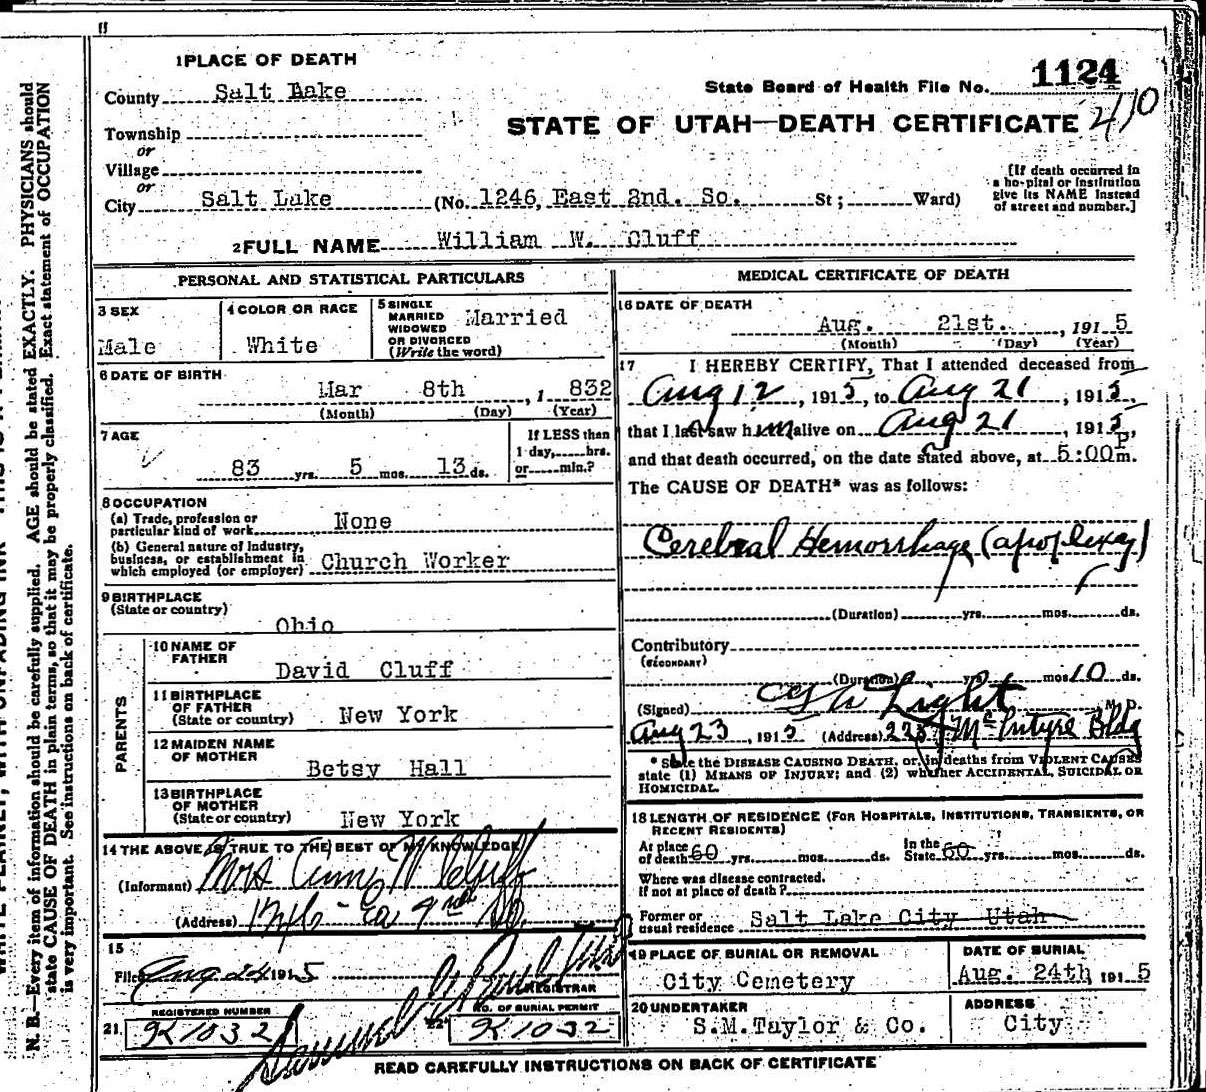 1 PLACE OF DEATH
County Salt Lake
State Board of Health File No. 1124
410
Township
or
STATE OF UTAH—DEATH CERTIFICATE
Village
or
City Salt Lake (No. 1246, East 2nd. So. St; Ward)
[If death occurred in
a hospital or institution
give its NAME instead
of street and number.]
2 FULL NAME William W. Cluff
PERSONAL AND STATISTICAL PARTICULARS
3 SEX
Male
4 COLOR OR RACE
White
5 SINGLE
MARRIED
WIDOWED
OR DIVORCED
(Write the word)
Married
6 DATE OF BIRTH
Mar 8th , 1 832
(Month) (Day) (Year)
7 AGE
83 yrs. 5 mos. 13 ds.
If LESS than
1 day, hrs.
or min.?
8 OCCUPATION
(a) Trade, profession or
particular kind of work None
(b) General nature of Industry,
business, or establishment in
which employed (or employer) Church Worker
9 BIRTHPLACE
(State or country)
Ohio
PARENTS
10 NAME OF
FATHER
David Cluff
11 BIRTHPLACE
OF FATHER
(State or country) New York
12 MAIDEN NAME
OF MOTHER
Betsy Hall
13 BIRTHPLACE
OF MOTHER
(State or country) New York
14 THE ABOVE IS TRUE TO THE BEST OF MY KNOWLEDGE
(Informant) Mrs W Cluff
(Address)
15
Filed Aug 24 191 5
REGISTRAR
REGISTERED NUMBER
21. K 1032
NO. OF BURIAL PERMIT
22 K 1032
MEDICAL CERTIFICATE OF DEATH
16 DATE OF DEATH
Aug. 21st. , 191 5
(Month) (Day) (Year)
17 I HEREBY CERTIFY, That I attended deceased from
Aug 12 , 1915, to Aug 21 , 1915,
that I last saw him alive on Aug 21 , 1915,
and that death occurred, on the date stated above, at 5:00 P m.
The CAUSE OF DEATH* was as follows:
Cerebral Hemorrhage (apoplexy)
(Duration) yrs. mos. ds.
Contributory
(SECONDARY)
(Duration) yrs. mos. 10 ds.
(Signed) Light M.D.
Aug 23 , 1915 (Address) McIntyre Bldg
* State the DISEASE CAUSING DEATH, or, in deaths from VIOLENT CAUSES
state (1) MEANS OF INJURY; and (2) whether ACCIDENTAL, SUICIDAL OR
HOMICIDAL.
18 LENGTH OF RESIDENCE (FOR HOSPITALS, INSTITUTIONS, TRANSIENTS, OR
RECENT RESIDENTS)
At place
of death 60 yrs. mos. ds.
In the
State 60 yrs. mos. ds.
Where was disease contracted.
If not at place of death?
Former or
usual residence Salt Lake City Utah
19 PLACE OF BURIAL OR REMOVAL
City Cemetery
DATE OF BURIAL
Aug. 24th 191 5
20 UNDERTAKER
S.M.Taylor & Co.
ADDRESS
City
READ CAREFULLY INSTRUCTIONS ON BACK OF CERTIFICATE
N. B.—Every item of information should be carefully supplied. AGE should be stated EXACTLY. PHYSICIANS should
state CAUSE OF DEATH in plain terms, so that it may be properly classified. Exact statement of OCCUPATION
is very important. See instructions on back of certificate.